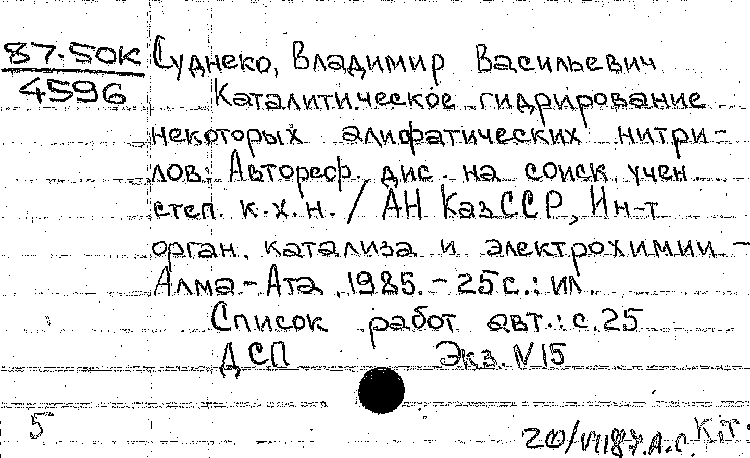 87-50К Суднеко, Владимир Васильевич
4596 Каталитическое гидрирование
некоторых алифатических нитри-
лов: Автореф. дис. на соиск. учен.
степ. к.х.н. / АН КазССР, Ин-т
орган. катализа и электрохимии -
Алма-Ата, 1985. - 25 с.: ил.
Список работ авт.: с. 25
ДСП Экз. N 15
5
20/VII87. А.С. К.Т.